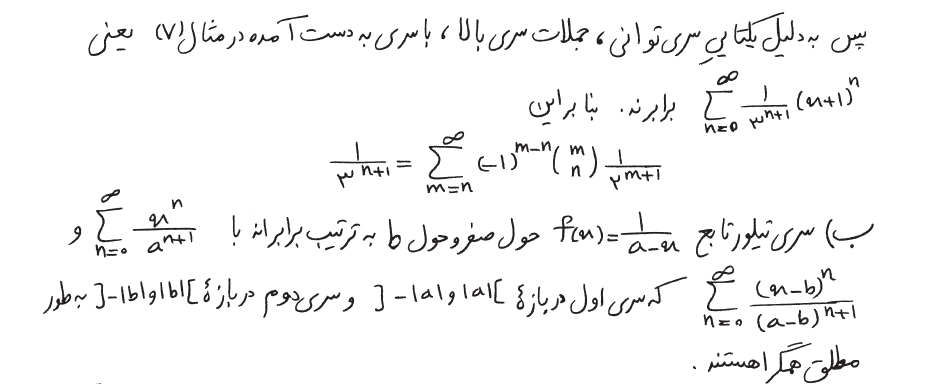 پس به دلیل یکتایی سری توانی، جملات سری بالا، با سری به دست آمده در مثال (۷) یعنی
∑_{n=0}^{∞} 1/۳^{n+1} (x+1)^n برابرند. بنابراین
1/۳^{n+1} = ∑_{m=n}^{∞} (-1)^{m-n} (m n) 1/۲^{m+1}
ب) سری تیلور تابع f(x)=1/(a-x) حول صفر و حول b به ترتیب برابرند با ∑_{n=0}^{∞} x^n/a^{n+1} و
∑_{n=0}^{∞} (x-b)^n/(a-b)^{n+1} که سری اول در بازهٔ ]-|a| و |a|[ و سری دوم در بازهٔ ]-|b| و |b|[ به طور
مطلق همگرا هستند.